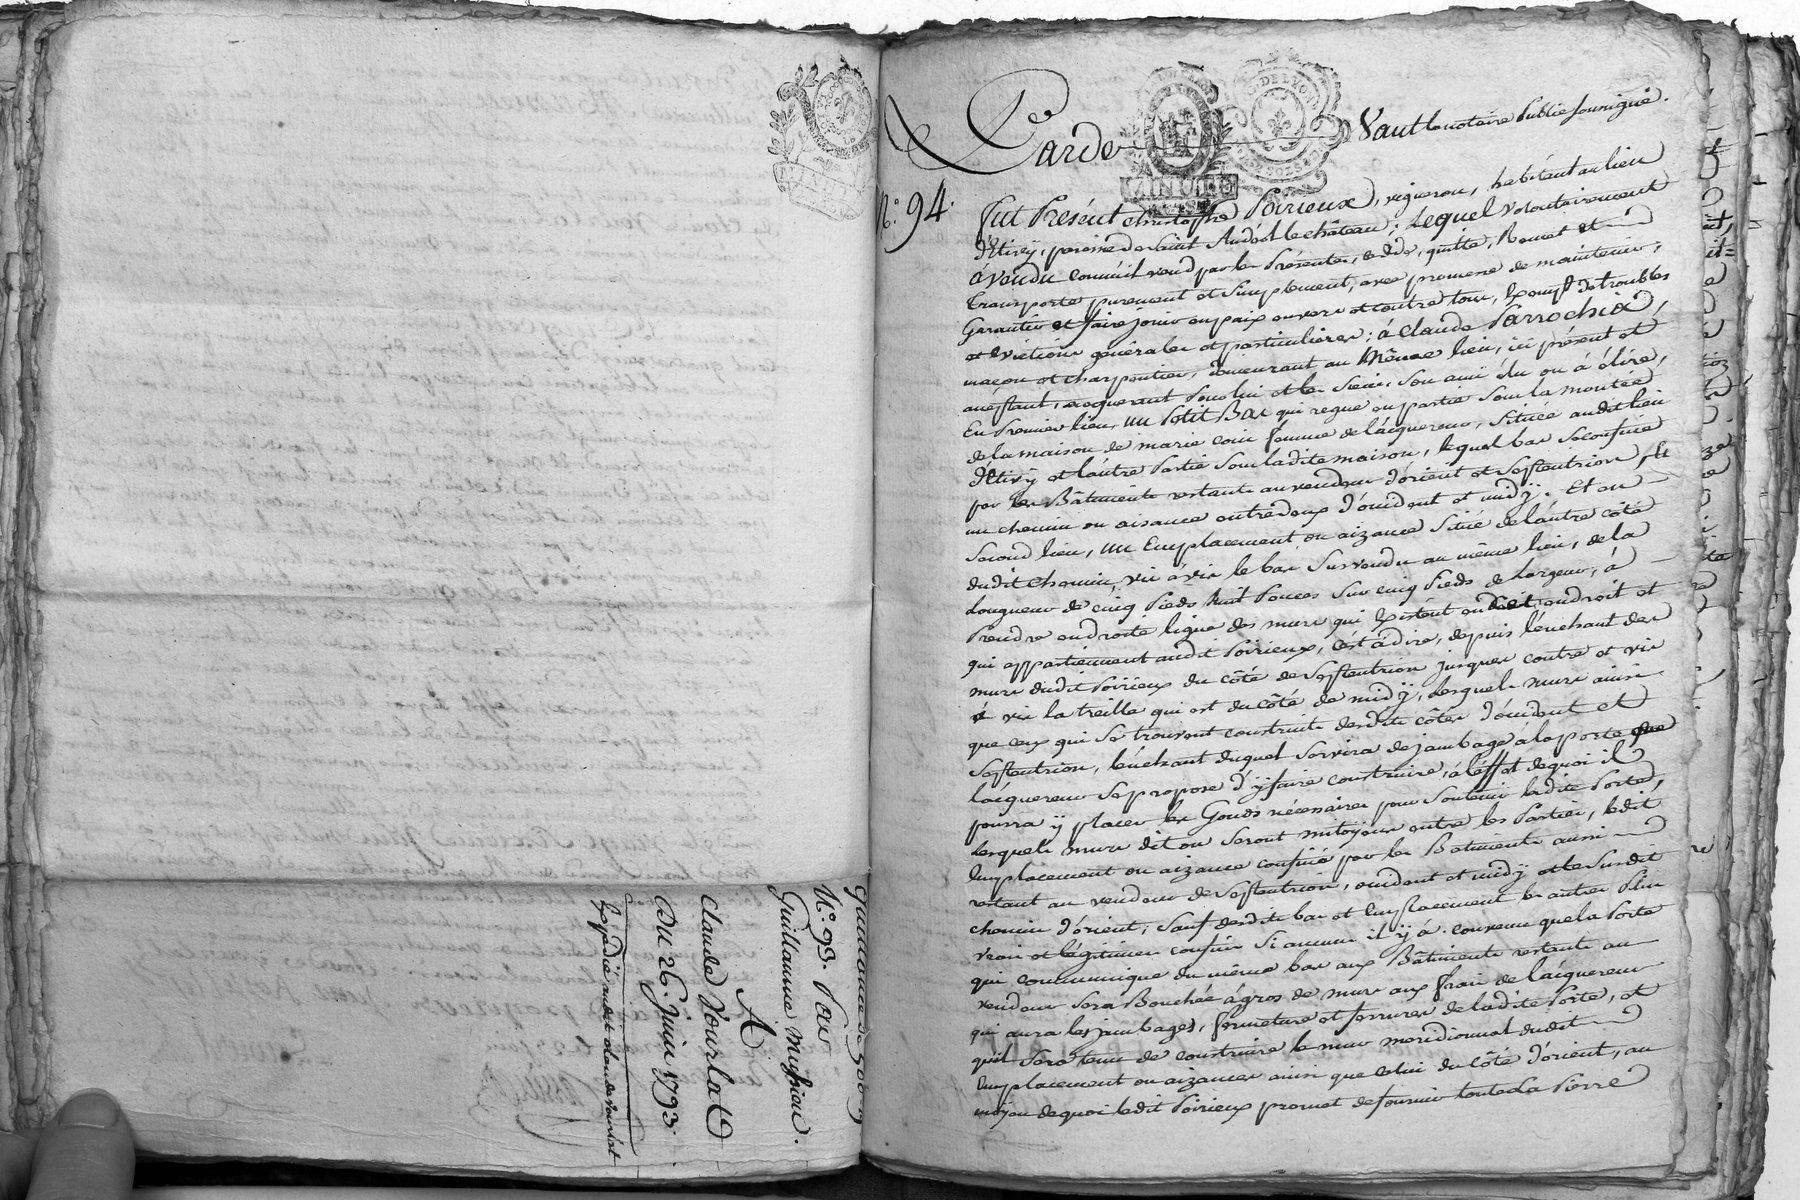 Quittance de 500 #
N.o 93. Par
Guillaume Messiat.
A
Claude Vourlat
Du 26. juin 1793.
Expedié audit claude vourlat
MINUTE
N.o 94.
Parde Vant le notaire Public soussigné.
fut Present christophe Poirieux, vigneron, habitant au lieu
d'Etivÿ, paroisse de saint Andeol le château; Lequel volontairement
à vendu comm'il vend par les Présentes, cède, quitte, Remet et
transporte purement et simplement, avec promesse de maintenir,
Garantir et faire jouir en paix envers et contre tous, Exempt de troubles
et evictions générales et particulieres; à Claude Parrochia,
maçon et charpentier, demeurant au Même lieu, ici présent et
acceptant, acquerent pour lui et les siens, son ami élu ou à élire,
En Premier lieu, un Petit Bas qui regne en partie sous la montée
de la maison de marie coin femme de l'acquereur, située audit lieu
d'Etivÿ et l'autre Partie sous ladite maison, lequel bas se confine
par les Bâtiments restants au vendeur d'orient et septentrion, Et
un chemin ou aisance entredeux d'occident et midÿ. Et en
second lieu, un Emplacement ou aizance Situé de l'autre côté
dudit chemin, vis à vis le bas susvendu au même lieu, de la
Longueur de cinq Pieds huit Pouces sur cinq Pieds de Largeur, à
Prendre en droite ligne des murs qui Existent en dit endroit et
qui appartiennent audit Poirieux, c'est à dire, depuis l'enchant des
murs dudit Poirieux du côté de septentrion jusques contre et vis
à vis la treille qui est du côté de midÿ, lesquels murs ainsi
que ceux qui se trouvent construits desdits côtés d'occident et
septentrion, l'enchant duquel servira de jambage a la porte que
l'acquereur se propose d'ÿ faire construire, à l'effet de quoi il
pourra ÿ placer les Gonds nécessaires pour soutenir ladite Porte,
lesquels murs dit on seront mitoÿens entre les Parties, ledit
Emplacement ou aizance confiné par les Batiments aussi
restant au vendeur de septentrion, occident et midÿ et le susdit
chemin d'orient; sauf desdits bas et Emplacement les autres Plus
vrais et légitimes confins si aucuns il ÿ à. convenu que la Porte
qui communique du même bas aux Bâtiments restants au
vendeur sera Bouchée à gros de murs aux frais de l'acquereur
qui aura les jambages, fermeture et ferrures de ladite Porte, et
qu'il sera tenu de construire le mur meridionnal dudit
Emplacement ou aizances ainsi que celui du côté d'orient, au
moyen de quoi ledit Poirieux promet de fournir toute La Pierre